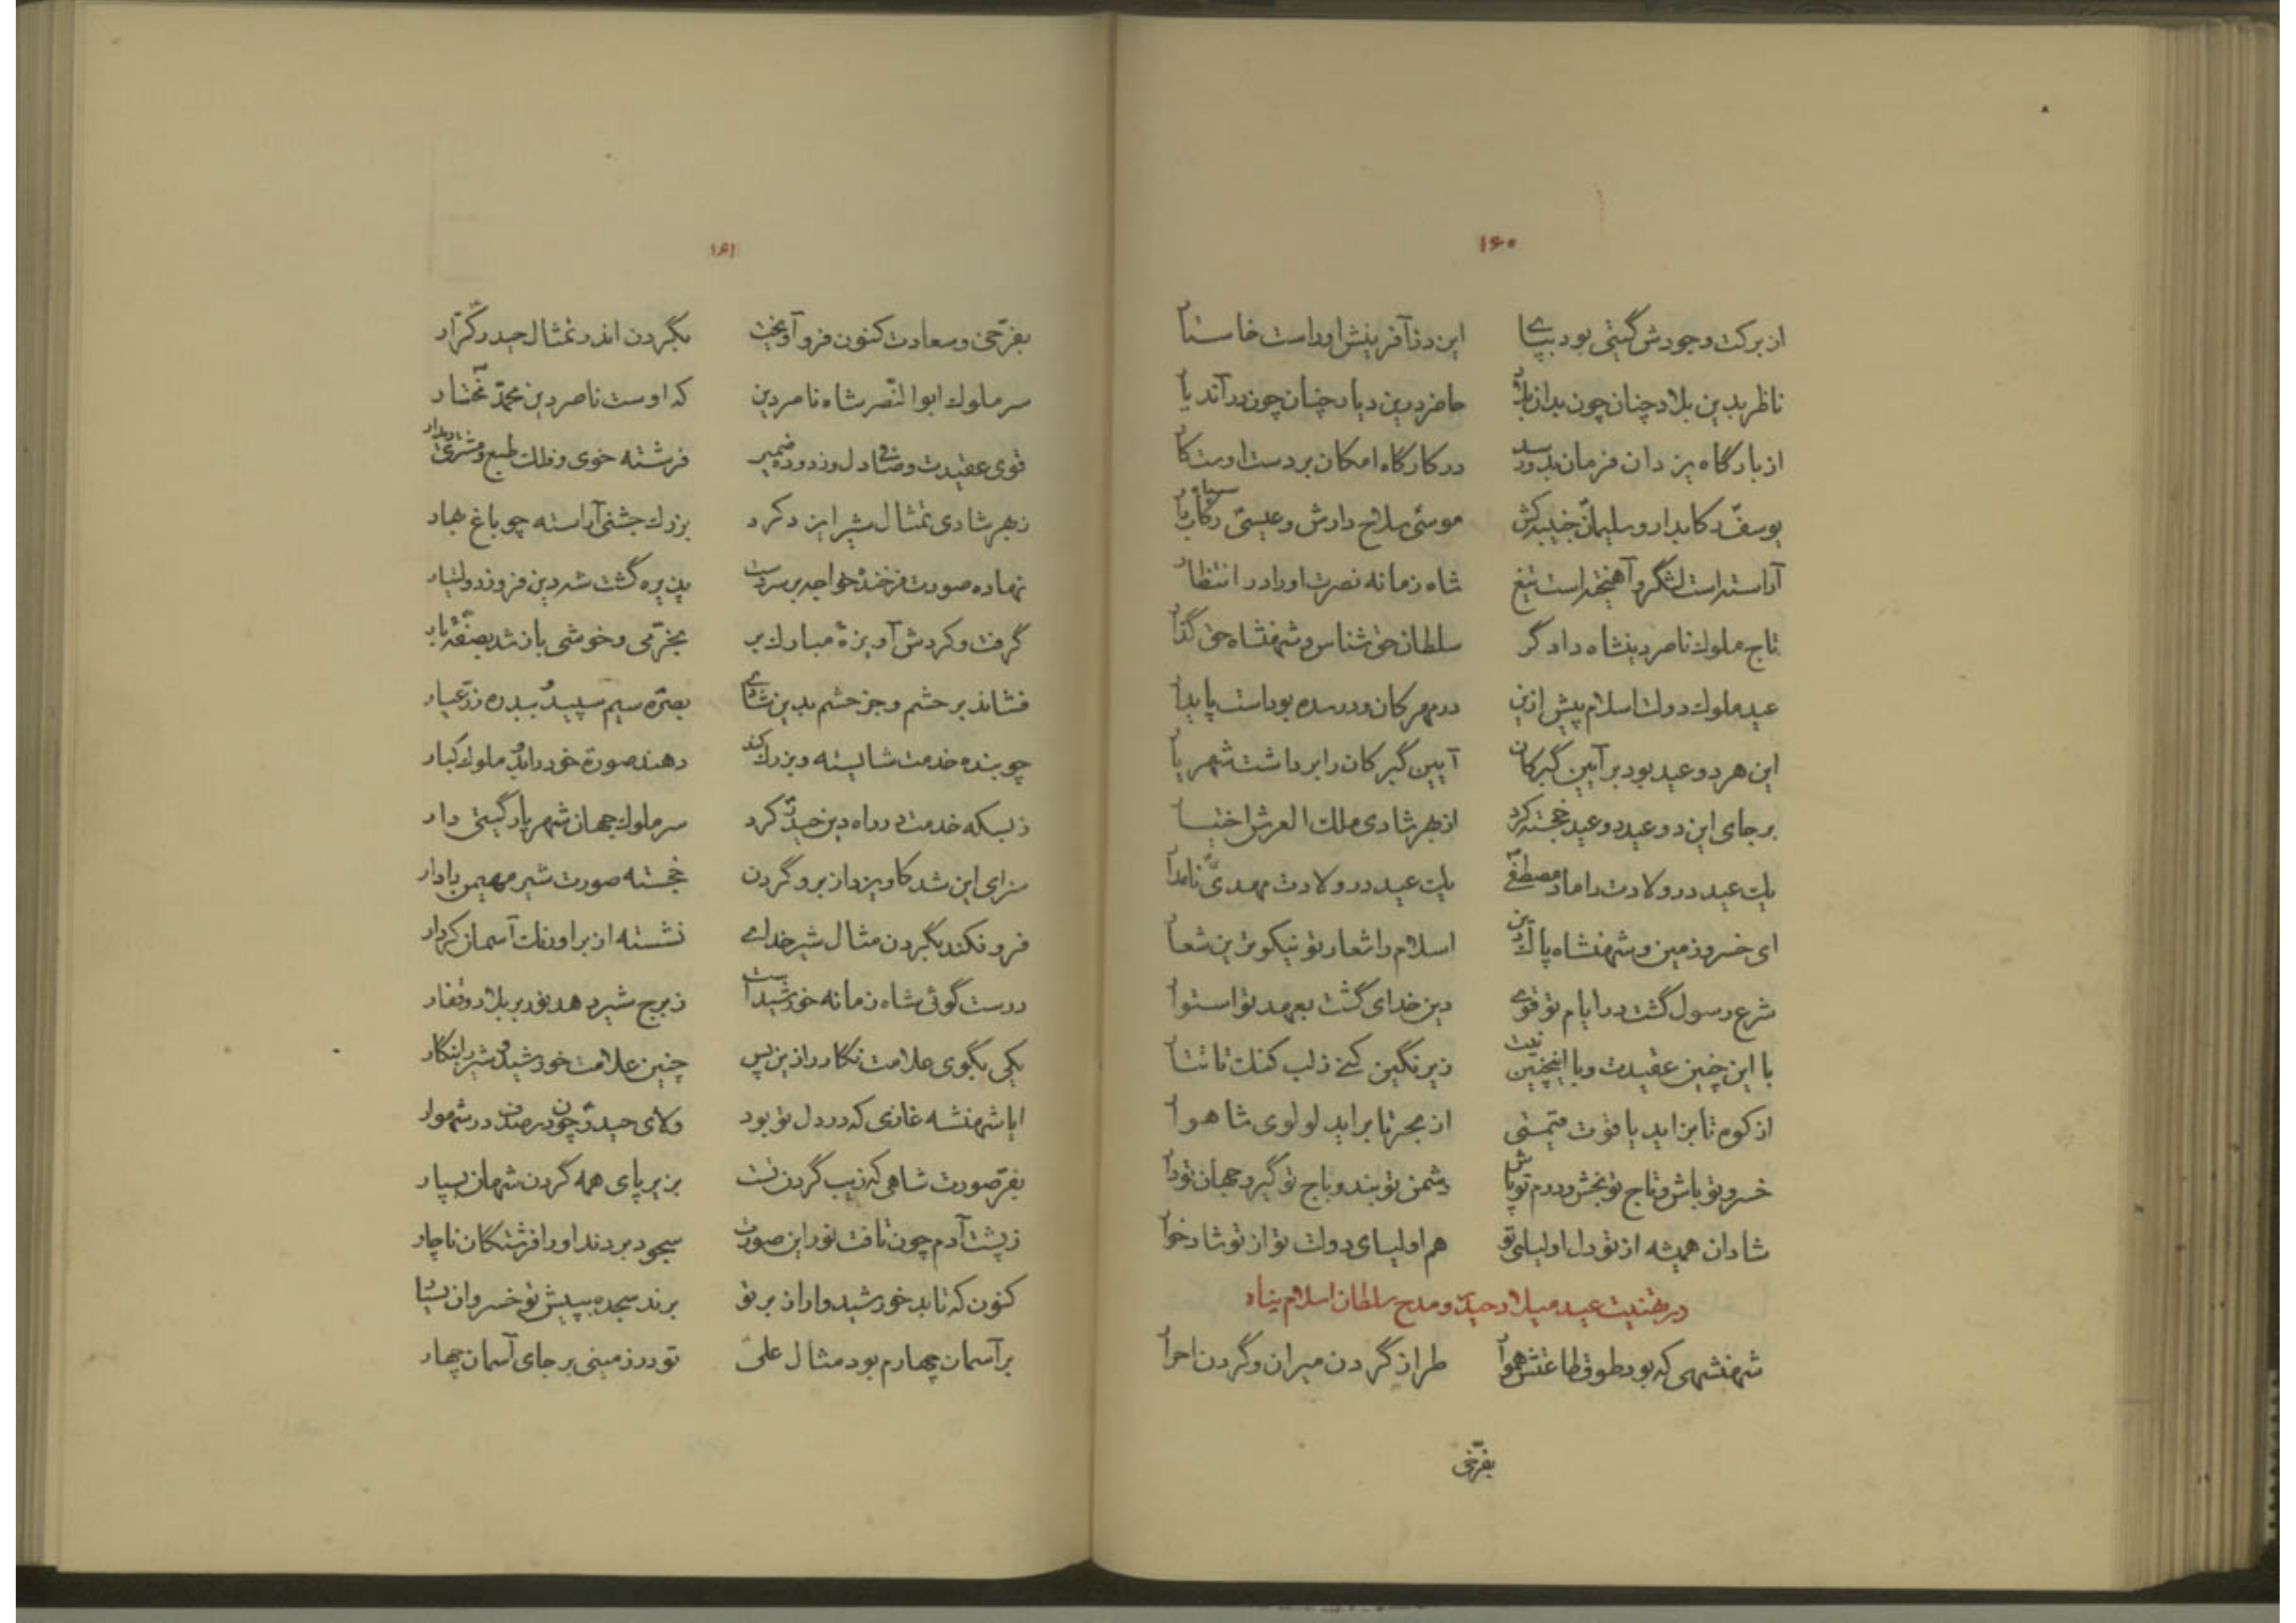 ۱۶۰
از برکت وجودش گیتی بود بپای این دن آفرینش او راست خاستار
ناظر بدین بلاد چنان چون بدان بلاد حاضر درین دیار چنان چون در آن دیار
از بارگاه یزدان فرمان بدو رسد در کارگاه امکان بر دست اوست کار
یوسف رکابدار و سلیمان جنیبه‌کش موسی سلاح دارش و عیسی رکاب‌دار
آراسته است لشگر و آهیخته است تیغ شاه زمانه نصرت او را در انتظار
تاج ملوک ناصر دینشاه دادگر سلطان حق شناس و شهنشاه حق گذار
عید ملوک دولت اسلام پیش ازین در مهرکان و در سده بوداست پایدار
این هر دو عید بود بر آیین گبرکان آیین گبرکان را برداشت شهریار
بر جای این دو عید دو عید خجسته کرد از بهر شادی ملک العرش اختیار
یک عید در ولادت داماد مصطفی یک عید در ولادت مهدی نامدار
ای خسرو زمین و شهنشاه پاک دین اسلام را شعار تو نیکوترین شعار
شرع رسول گشت در ایام تو قوی دین خدای گشت بعهد تو استوار
با این چنین عقیدت و با اینچنین نیت زیر نگین کنی ز لب کنک تا تتار
از کوه تا بزاید یاقوت قیمتی از بحر تا برآید لولوی شاهوار
خسرو تو باش و تاج تو بخش و درم تو پاش دشمن تو بند و باج تو گیر و جهان تو دار
شادان همیشه از تو دل اولیای تو هم اولیای دولت تو از تو شادخوار
در تهنیت عید میلاد حیدر و مدح سلطان اسلام پناه
شهنشهی که بود طوق طاعتش هموار طراز گردن میران و گردن احرار
بفرخی
۱۶۱
بفرخی و سعادت کنون فرو آویخت بگردن اندر تمثال حیدر کرار
سر ملوک ابوالنصر شاه ناصر دین که اوست ناصر دین محمد مختار
قوی عقیدت و صافی دل و زدوده ضمیر فرشته خوی و فلک طبع و مشتری دیدار
ز بهر شادی تمثال شیر ایزد کرد بزرک جشنی آراسته چو باغ بهار
نهاده صورت فرخنده خواجه بر سر دست پذیره گشت شه دین فروز دولتیار
گرفت و کردش آویزهٔ مبارک بر بخرمی و خوشی باز شد بصفهٔ بار
فشاند بر حشم و جز حشم بدین شادی بصره سیم سپید و ببدره زر عیار
چو بنده خدمت شایسته و بزرک کند دهند صورة خود را بدو ملوک کبار
ز بسکه خدمت در راه دین حیدر کرد سر ملوک جهان شهریار گیتی دار
سزای این شد کاویزد از بر و گردن خجسته صورت شیر مهیمن دادار
فرو فکند بگردن مثال شیر خدای نشسته از بر اورنک آسمان کردار
درست گوئی شاه زمانه خورشید است ز برج شیر دهد نور بر بلاد و قفار
یکی بگوی علامت نکار را ازین پس چنین علامت خورشید و شیر را بنگار
ایا شهنشه غازی که در دل تو بود ولای حیدر چون در صدف در شهوار
بفر صورت شاهی که زیب گردن تست بزیر پای همه گردن شهان بسپار
ز پشت آدم چون تافت نور این صورت سجود بردند او را فرشتکان ناچار
کنون که تابد خورشیدوار از بر تو برند سجده بپیش تو خسروان
بر آسمان چهارم بود مثال علی تو در زمینی بر جای آسمان چهار